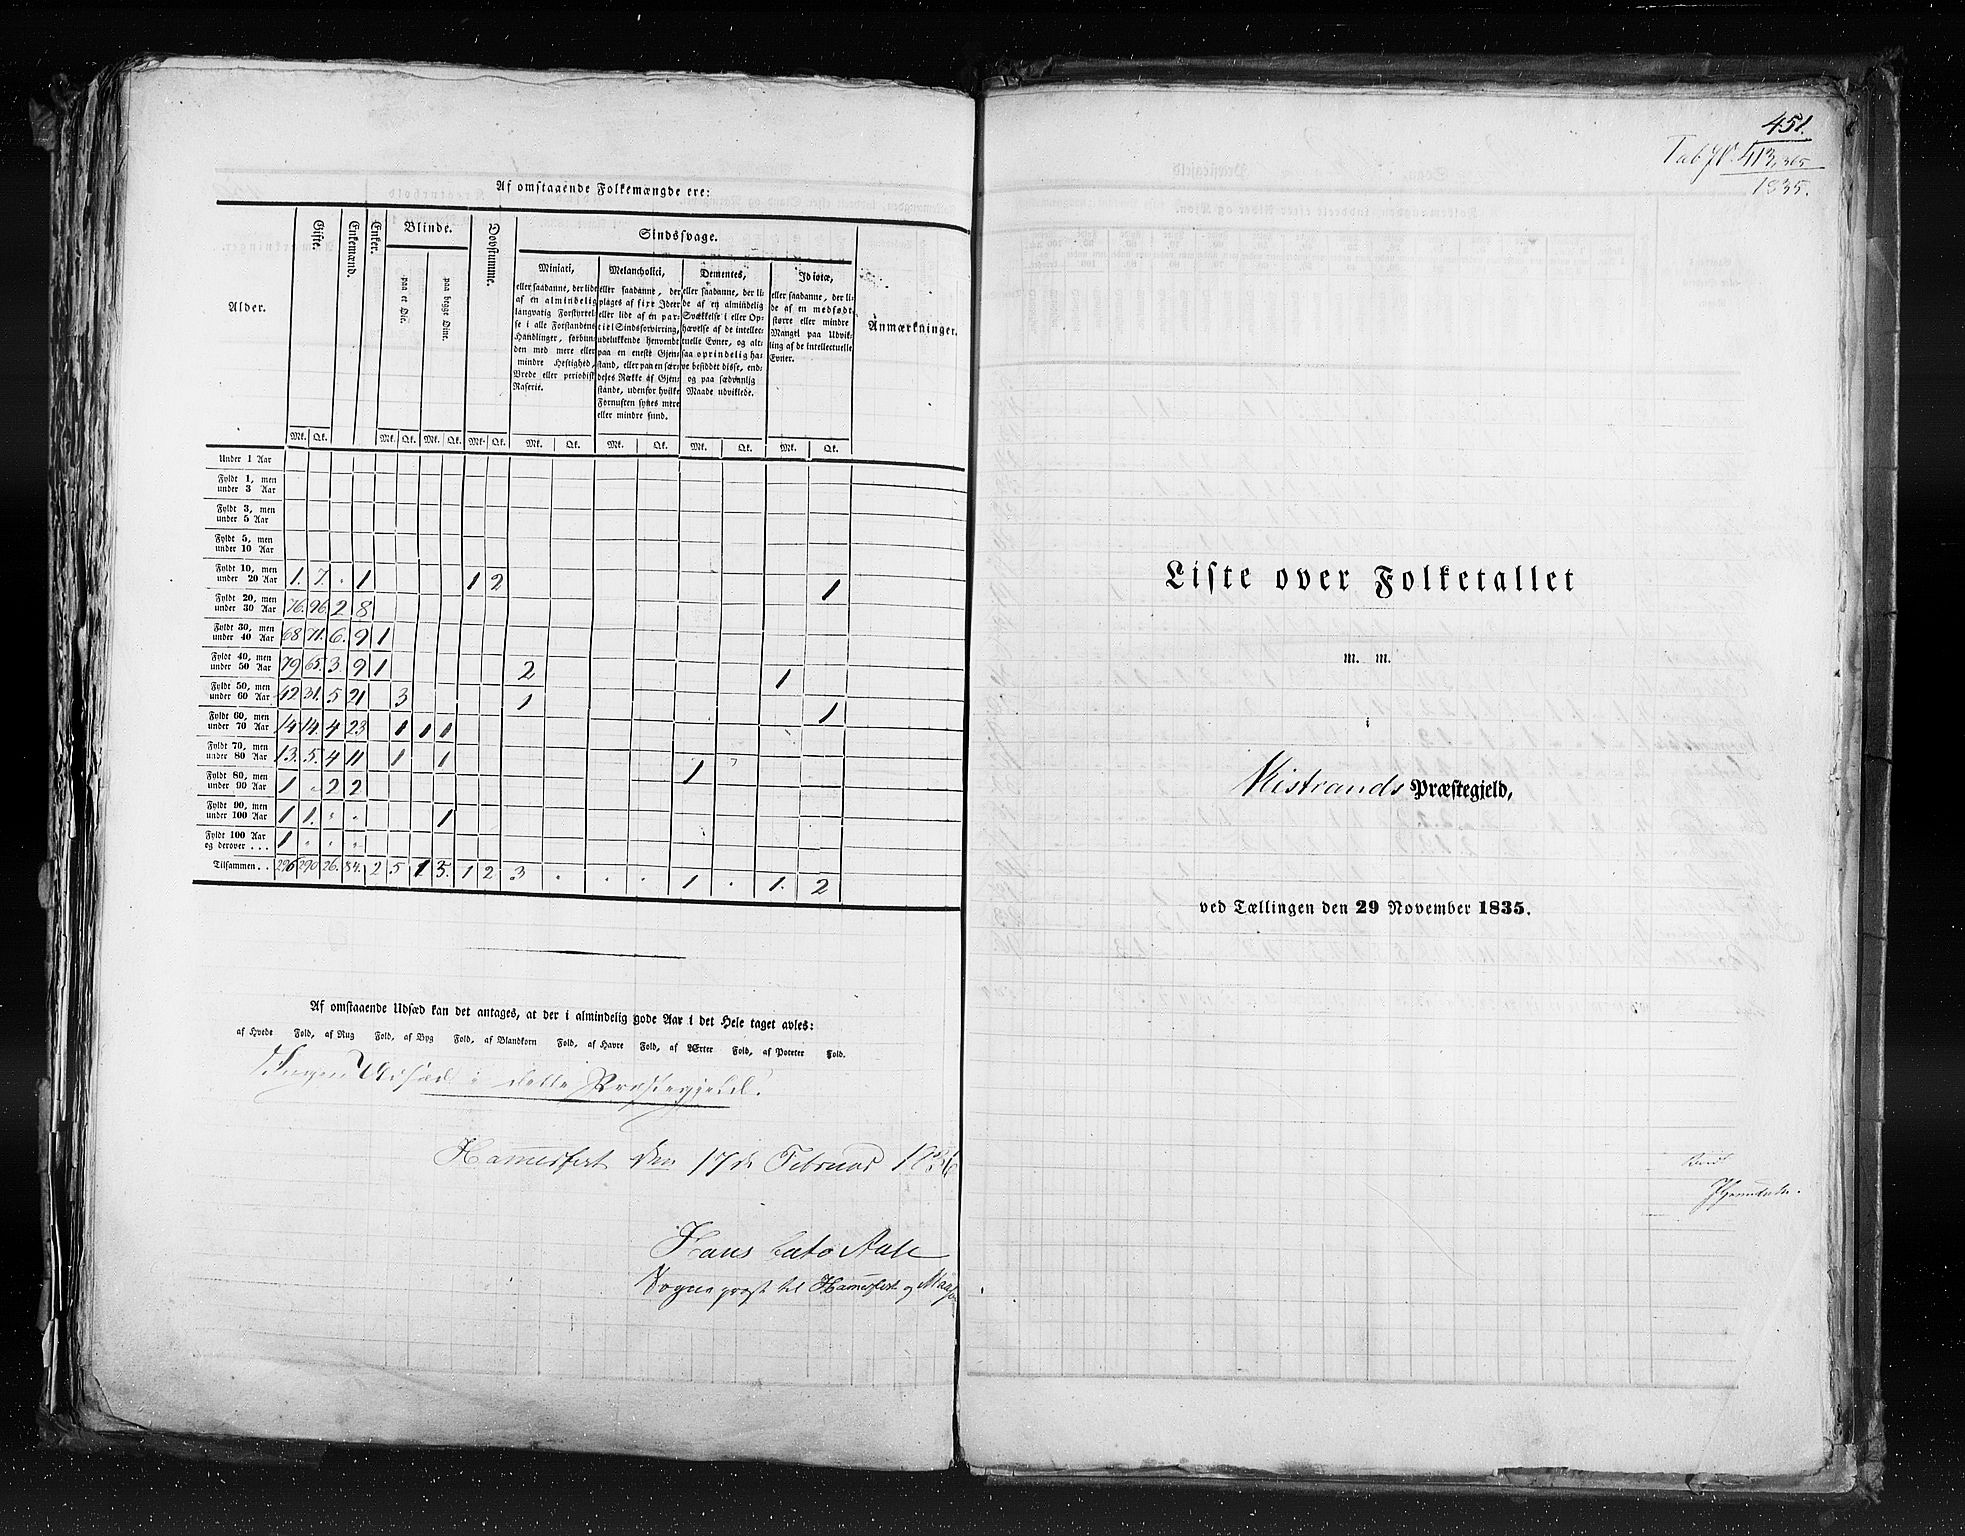 Af omstaaende Folkemængde ere:
Alder.
Gifte.
Enkemænd.
Enker.
Blinde.
paa et Øie.
paa begge Øine.
Døvstumme.
Sindssvage.
Miniati,
eller saadanne, der lide
af en almindelig
langvarig Forstyrrelse
i alle Forstandens
Handlinger, forbunden
med mere eller
mindre Heftighed,
Vrede eller periodisk
Raserie.
Melancholici,
eller saadanne, der
plages af fixe Ideer
eller lide af en partiel
Sindsforvirring,
udelukkende henvendt
paa en eneste Gjenstand,
eller paa en særdeles
Række af Gjenstande,
udenfor hvilke
Fornuften synes mere
eller mindre sund.
Dementes,
eller saadanne, der lide
af en almindelig
Svækkelse i eller Ophævelse
af de intellectuelle
Evner, og altsaa
oprindelig have
besiddet disse, endog
paa sædvanlig
Maade udviklede.
Idiotæ,
eller saadanne, der lide
af en medfødt
større eller mindre
Mangel paa Udvikling
af de intellectuelle
Evner.
Anmærkninger.
Mk. Qk. Mk. Qk. Mk. Qk. Mk. Qk. Mk. Qk. Mk. Qk. Mk. Qk. Mk. Qk.
Under 1 Aar
Fyldt 1, men
under 3 Aar
Fyldt 3, men
under 5 Aar
Fyldt 5, men
under 10 Aar
Fyldt 10, men
under 20 Aar 1. 7. . 1 1 2 1
Fyldt 20, men
under 30 Aar 76. 96. 2 8
Fyldt 30, men
under 40 Aar 68 71. 6. 9 1
Fyldt 40, men
under 50 Aar 79 65. 3 9 1 2 1
Fyldt 50, men
under 60 Aar 42. 31. 5 21 3 1 1
Fyldt 60, men
under 70 Aar 14 14. 4 23 1 1 1
Fyldt 70, men
under 80 Aar 13. 5. 4 11 1 1 1
Fyldt 80, men
under 90 Aar 1 . 2 2
Fyldt 90, men
under 100 Aar 1 1. " " 1
Fyldt 100 Aar
og derover . . . 1 " " "
Tilsammen . . 296 290 26. 84. 2 5 1 3. 1 2 3 . . . 1 . 1. 2
Af omstaaende Udsæd kan det antages, at der i almindelig gode Aar i det Hele taget avles:
af Hvede Fold, af Rug Fold, af Byg Fold, af Blandkorn Fold, af Havre Fold, af Ærter Fold, af Poteter Fold.
Ingen Udsæd i dette Præstegjeld.
Hamerfest den 17de Februar 1836
Hans Cato Aall
Sogneprest til Hamerfest og
451.
Tab No. 413,365
1835.
Liste over Folketallet
m. m.
i
Kistrands Præstegjeld,
ved Tællingen den 29 November 1835.